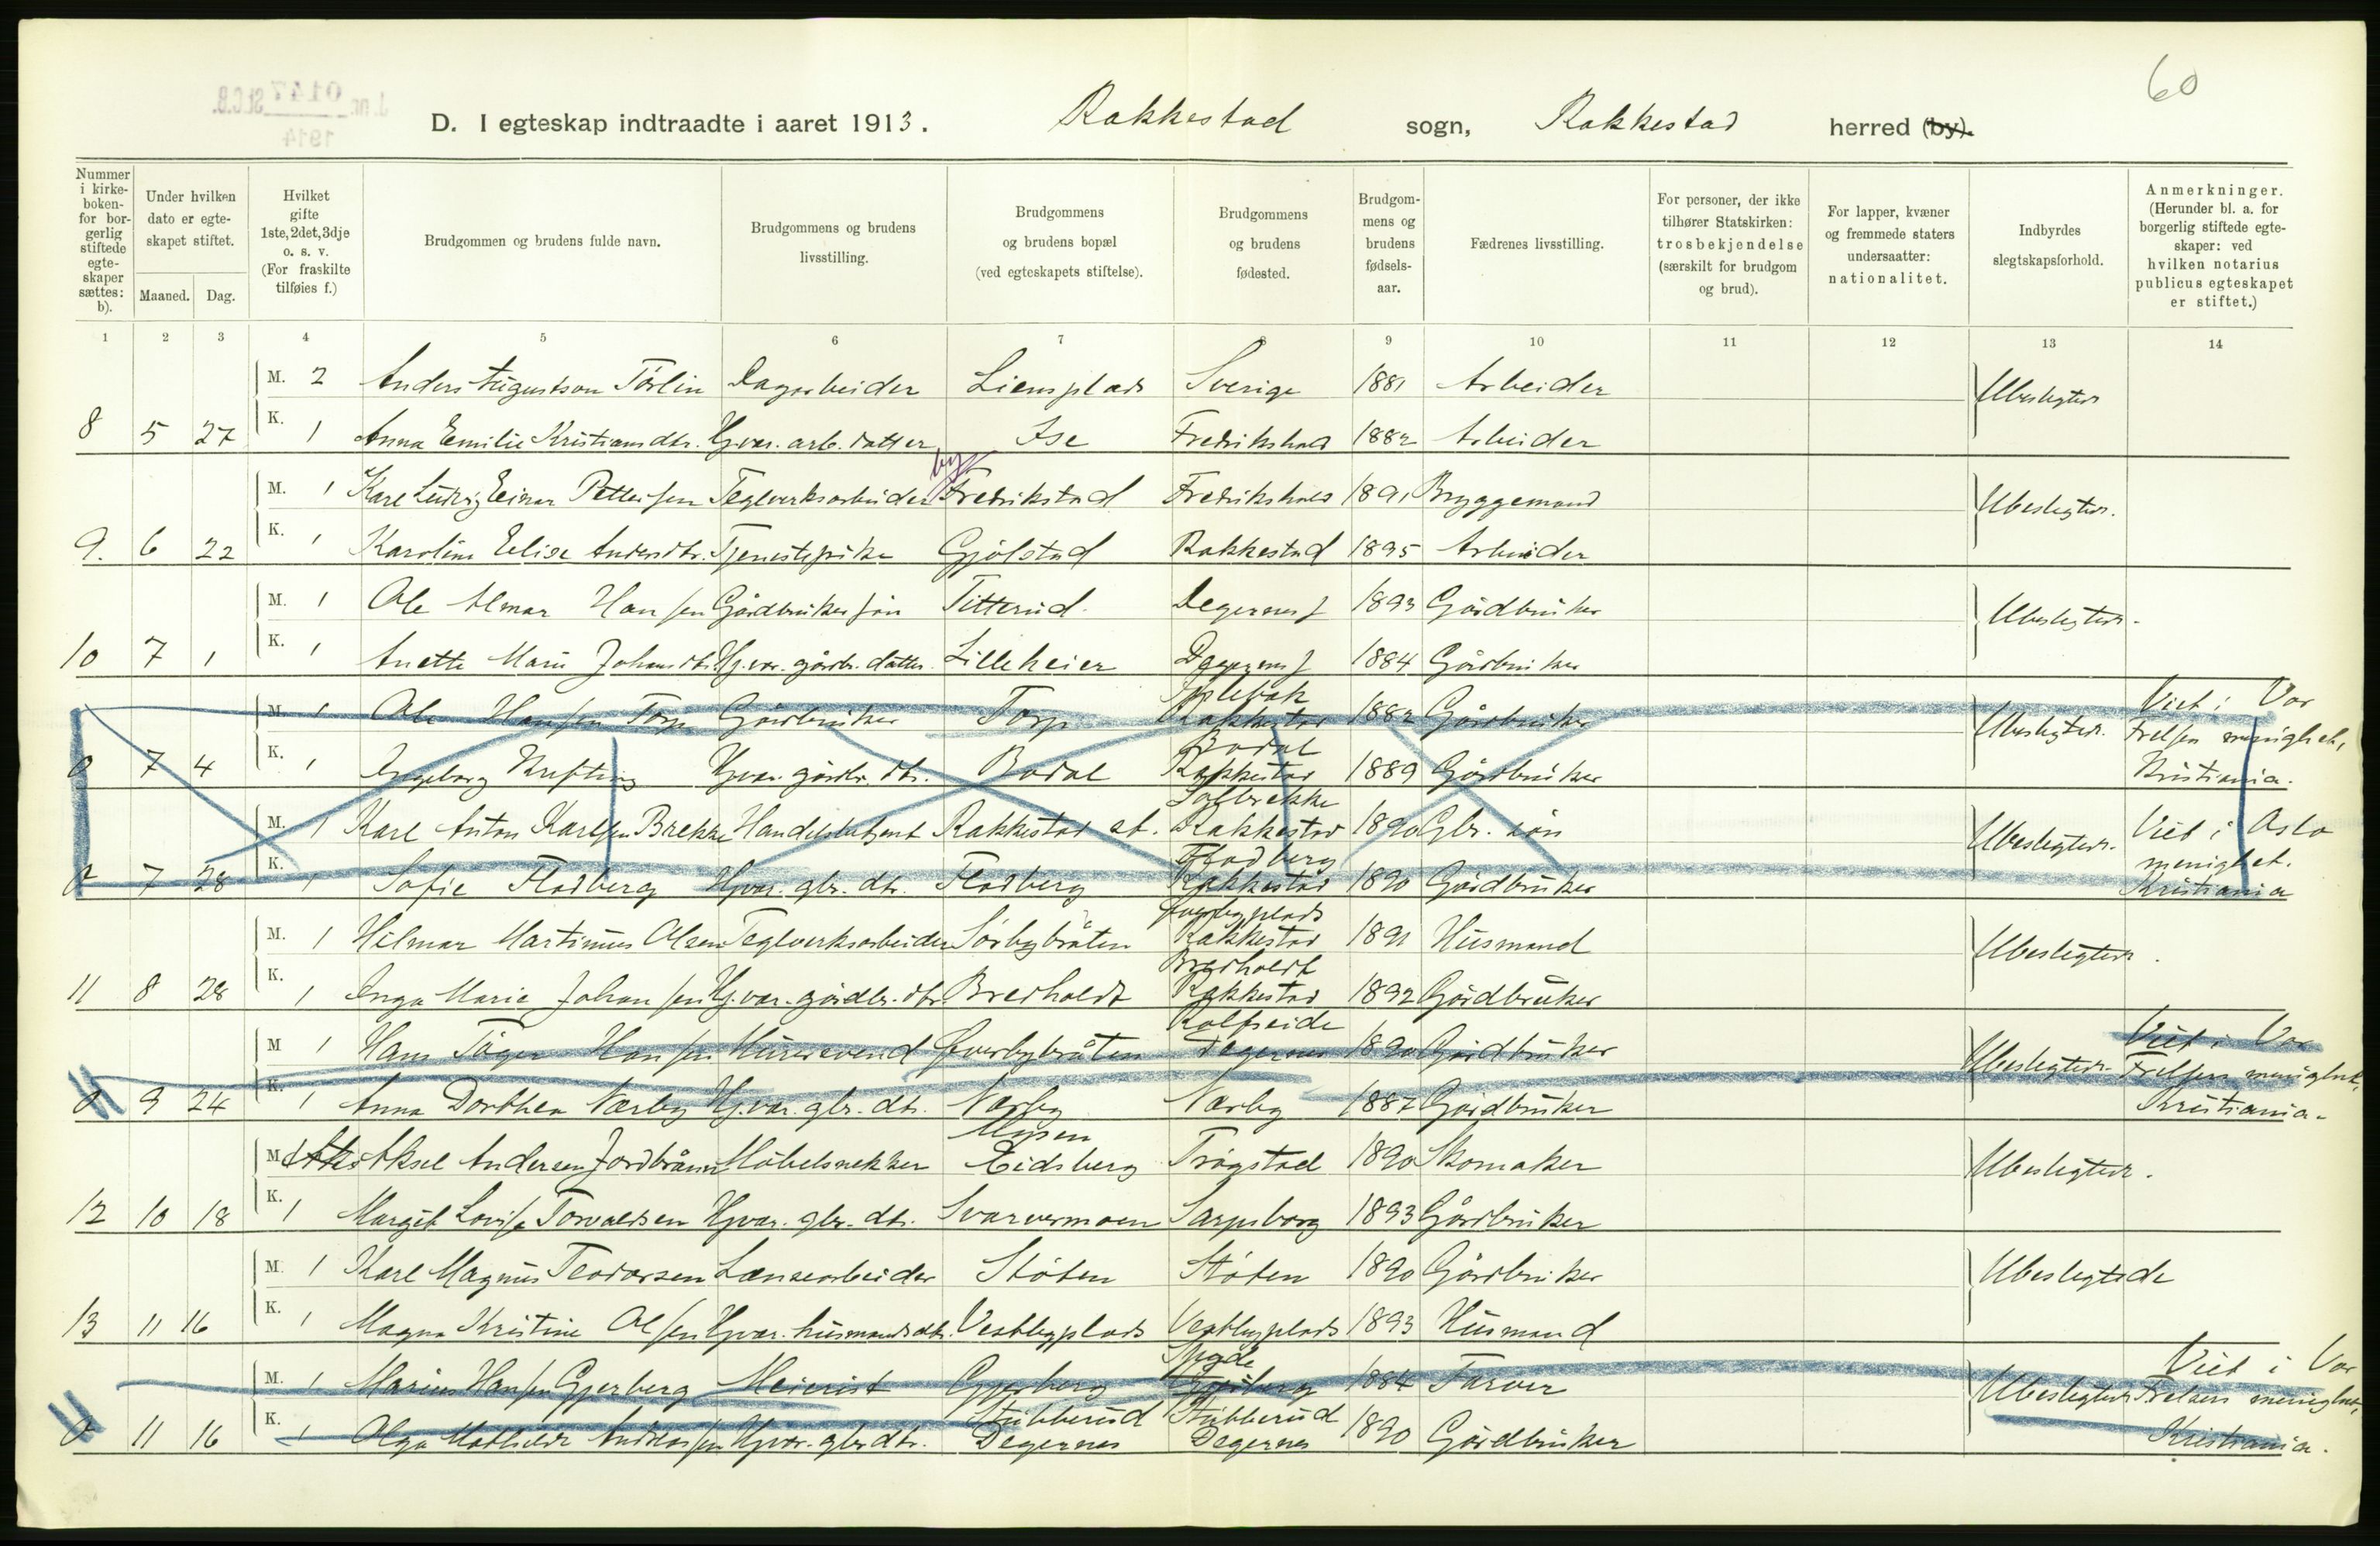 60
J. nr. 0147 St.C.B.
1914
D. I egteskap indtraadte i aaret 1913. Rakkestad sogn, Rakkestad herred (by).
Nummer i kirkeboken- for borgerlig stiftede egteskaper sættes: b).
Under hvilken dato er egteskapet stiftet.
Maaned. Dag.
Hvilket gifte 1ste, 2det, 3dje o. s. v. (For fraskilte tilføies f.)
Brudgommen og brudens fulde navn.
Brudgommens og brudens livsstilling.
Brudgommens og brudens bopæl (ved egteskapets stiftelse).
Brudgommens og brudens fødested.
Brudgommens og brudens fødselsaar.
Fædrenes livsstilling.
For personer, der ikke tilhører Statskirken: trosbekjendelse (særskilt for brudgom og brud).
For lapper, kvæner og fremmede staters undersaatter: nationalitet.
Indbyrdes slegtskapsforhold.
Anmerkninger. (Herunder bl. a. for borgerlig stiftede egteskaper: ved hvilken notarius publicus egteskapet er stiftet.)
1 2 3 4 5 6 7 8 9 10 11 12 13 14
M. 2 Anders Augustson Törlin Dagarbeider Liensplads Sverige 1881 Arbeider Ubeslegtede
8 5 27 K. 1 Anna Emilie Kristiansdtr. Hj.var. arb. datter Ise Fredrikshald 1882 Arbeider
by
M. 1 Karl Ludvig Einar Pettersen Teglverksarbeider Fredrikstad Fredrikshald 1891 Bryggemand Ubeslegtede.
9. 6 22 K. 1 Karoline Elise Andersdtr. Tjenestepike Gjölstad Rakkestad 1895 Arbeider
M. 1 Ole Almar Hansen Gårdbruker sön Titterud. Degernes 1893 Gårdbruker Ubeslegtede.
10 7 1 K. 1 Anette Marie Johansdtr. Hj.var. gårdbr. datter. Lilleheier Degernes 1884 Gårdbruker
Viet i Vor
M. 1 Ole Hansen Torp Gårdbruker Torp Rakkestad 1882 Gårdbruker Ubeslegtede. Frelsers menighet,
Bodal
0 7 4 K. 1 Ingeborg Hvefting Hj.var. gårdbr. dtr. Bodal Rakkestad 1889 Gårdbruker Kristiania.
M. 1 Karl Anton Karlsen Brekke Handelsbetjent Rakkestad st. Rakkestad 1890 Gbr. sön Ubeslegtede. Viet i Oslo
Fladberg menighet.
0 7 28 K. 1 Sofie Fladberg Hj.var. gbr. dtr. Fladberg Rakkestad 1890 Gårdbruker Kristiania
M. 1 Hilmar Martinus Olsen Teglverksarbeider Sörbybråten Rakkestad 1891 Husmand Ubeslegtede.
Bredholdt
11 8 28 K. 1 Inga Marie Johansen Hj.var. gårdbr. dtr. Bredholdt Rakkestad 1892 Gårdbruker
Kolfseide Viet i Vor
M 1 Hans Töger Hansen Murersvend Degernes 1890 Gårdbruker Ubeslegtede. Frelsers menighet,
0 9 24 K. 1 Anna Dorthea Nærby Hj.var. gbr. dtr. Nærby Nærby 1887 Gårdbruker Kristiania.
Mysen
M. Aksel Andersen Jordbråten Möbelsnekker Eidsberg Trögstad 1890 Skomaker Ubeslegtede.
12 10 18 K. 1 Margit Lovise Torvaldsen Hj.var. gbr. dtr. Svarvermoen Sarpsborg 1893 Gårdbruker
M. 1 Karl Magnus Teodorsen Lænsearbeider Stöten Stöten 1890 Gårdbruker Ubeslegtede
13 11 16 K. 1 Magna Kristine Olsen Hj.var. husmands dtr. Vestbyplads Vestbyplads 1893 Husmand
Viet i Vor
M. 1 Marius Hansen Gjerberg Meierist Gjerberg 1884 Farver Ubeslegtede Frelsers menighet,
Stubberud Stubberud
0 11 16 K. 1 Olga Mathilde Andreassen Hj.var. gbr dtr. Degernes Degernes 1890 Gårdbruker Kristiania.